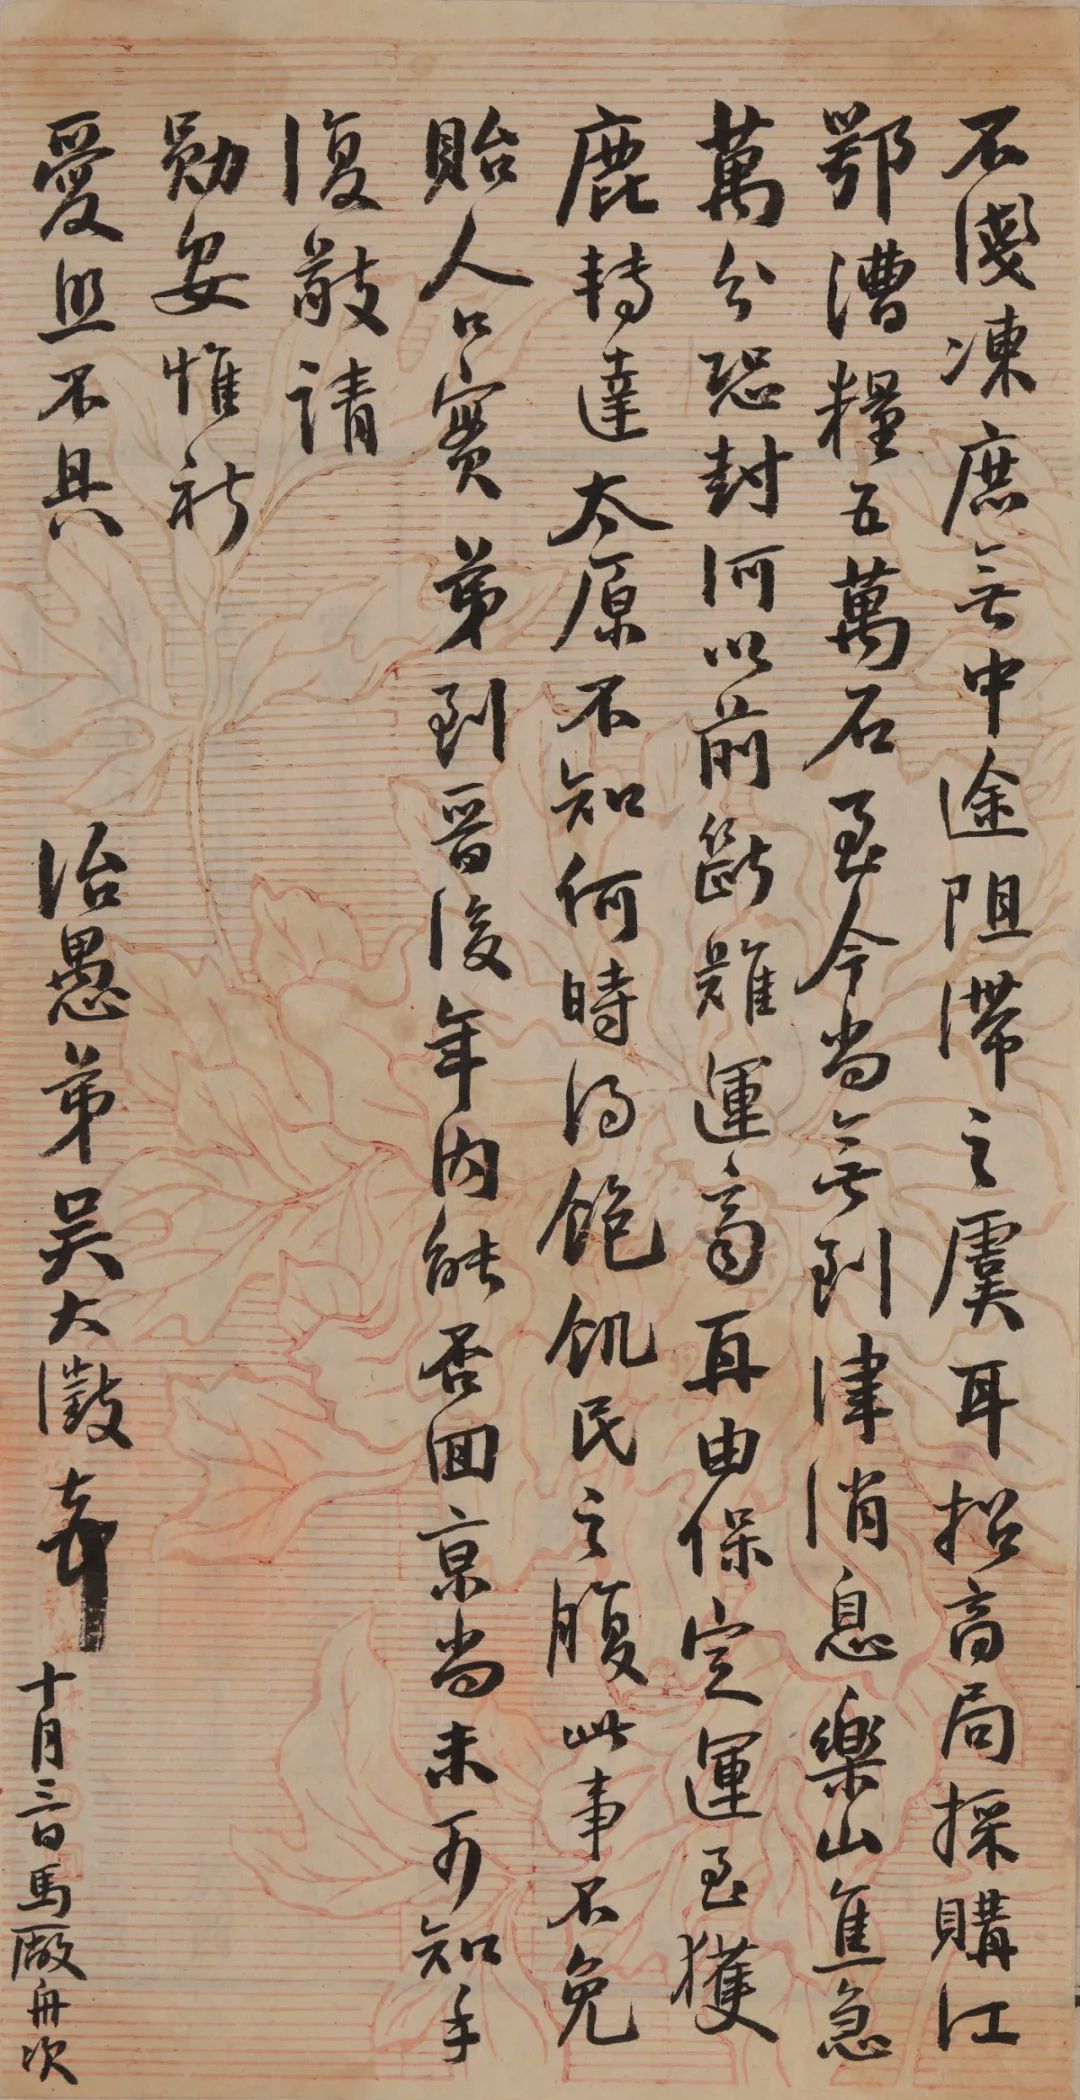 不淺凍庶无中途阻滯之虞耳招商局採購江
鄂漕糧五萬石至今尚无到津消息樂山焦急
萬分恐封河以前斷難運齊再由保定運至獲
鹿轉達太原不知何時得飽飢民之腹此事不免
貽人口實弟到晋後年內能否回京尚未可知手
復敬請
勛安惟祈
愛照不具
治愚弟吳大澂頓首
十月三日馬廠舟次